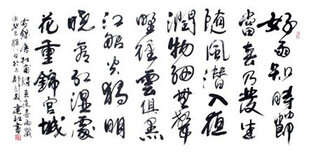 好雨知時節
當春乃發生
隨風潛入夜
潤物細無聲
野徑雲俱黑
江船火獨明
曉看紅濕處
花重錦官城